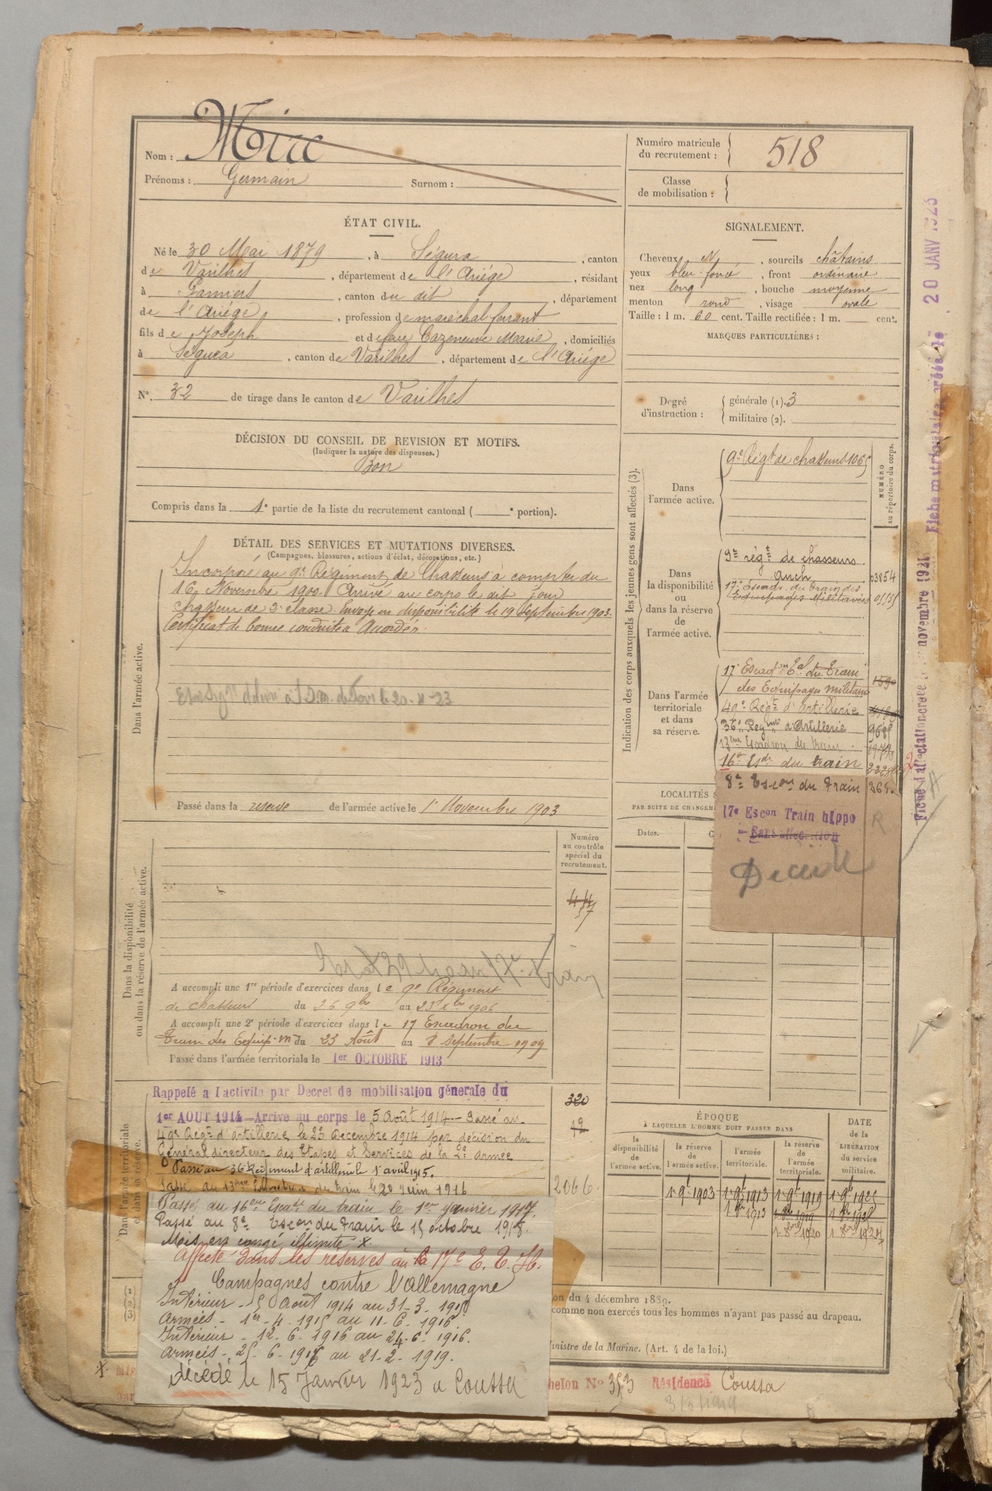 Nom : Mirc
Prénoms : Germain Surnom :
Numéro matricule du recrutement : 518
Classe de mobilisation :
ÉTAT CIVIL.
Né le 30 Mai 1879, à Ségura, canton
de Varilhes, département de l'Ariège, résidant
à Pamiers, canton du dit, département
de l'Ariège, profession de maréchal ferrant
fils de Joseph et de feue Cazeneuve Marie, domiciliés
à Ségura, canton de Varilhes, département de l'Ariège
N°. 32 de tirage dans le canton de Varilhes
SIGNALEMENT.
Cheveux N, sourcils châtains
yeux bleu foncé, front ordinaire
nez long, bouche moyenne
menton rond, visage ovale
Taille : 1 m. 60 cent. Taille rectifiée : 1 m. cent.
MARQUES PARTICULIÈRES :
Degré d'instruction : générale (1). 3
militaire (2).
DÉCISION DU CONSEIL DE REVISION ET MOTIFS.
(Indiquer la nature des dispenses.)
Bon
Compris dans la 1e partie de la liste du recrutement cantonal ( e portion).
DÉTAIL DES SERVICES ET MUTATIONS DIVERSES.
(Campagnes, blessures, actions d'éclat, décorations, etc.)
Dans l'armée active.
Incorporé au 9e Régiment de Chasseurs à compter du
16 Novembre 1900. Arrivé au corps le dit jour
chasseur de 2e classe. Envoyé en disponibilité le 19 Septembre 1903.
Certificat de bonne conduite Accordé.
Passé dans la réserve de l'armée active le 1er Novembre 1903
Indication des corps auxquels les jeunes gens sont affectés (3).
NUMÉRO au répertoire du corps.
Dans l'armée active.
9e Régt de chasseurs 1065
Dans la disponibilité ou dans la réserve de l'armée active.
9me régt de chasseurs
Auch
17e Escadn du train des
Equipages Militaires
Dans l'armée territoriale et dans sa réserve.
17e Escadn Eal du Train
des Equipages militaires
40e Régt d'Artillerie
36e Régiment d'Artillerie
13me Escadron du train
16e Esdn du train
8e Escon du Train
17e Escon Train hippo
Sans affectation
R
Décédé
LOCALITÉS
PAR SUITE DE CHANGEM
Dates.
Fiche d'affectation créée le novembre 1921
Fiche matriculaire créée le 20 JANV 1923
Dans la disponibilité ou dans la réserve de l'armée active.
Numéro au contrôle spécial du recrutement.
A accompli une 1re période d'exercices dans le 9e Régiment
de Chasseurs du 26 9bre au 23 Xbre 1906
A accompli une 2e période d'exercices dans le 17 Escadron du
Train des Equip. M du 23 Août au 8 Septembre 1909
Passé dans l'armée territoriale le 1er OCTOBRE 1913
Dans l'armée territoriale et dans sa réserve.
Rappelé à l'activité par Decret de mobilisation générale du
1er AOUT 1914 Arrivé au corps le 5 Août 1914 Passé au
40e Régt d'artillerie le 23 Décembre 1914 par décision du
Général directeur des Etapes et Services de la 2e Armée
Passé au 36 Régiment d'artillerie le 1er avril 1915.
Passé au 13me Escadron du train le 20 juin 1916
Passé au 16me Escadn du train le 1er Janvier 1917.
Passé au 8e Escon du Train le 15 octobre 1918.
Mis en congé illimité X
Affecté dans les réserves au 17e E. T. H.
Campagnes contre l'Allemagne
Intérieur - 5 Août 1914 au 31-3-1915
Armées - 1er-4-1915 au 11-6-1916
Intérieur - 12-6-1916 au 24-6-1916.
Armées - 25-6-1916 au 21-2-1919.
décédé le 15 Janvier 1923 à Coussa
320
19
2066
ÉPOQUE
À LAQUELLE L'HOMME DOIT PASSER DANS
la disponibilité de l'armée active.
la réserve de l'armée active.
l'armée territoriale.
la réserve de l'armée territoriale.
DATE de la LIBÉRATION du service militaire.
1 9bre 1903
on du 4 décembre 1889.
comme non exercés tous les hommes n'ayant pas passé au drapeau.
inistre de la Marine. (Art. 4 de la loi.)
helon N° 353 Résidence Coussa